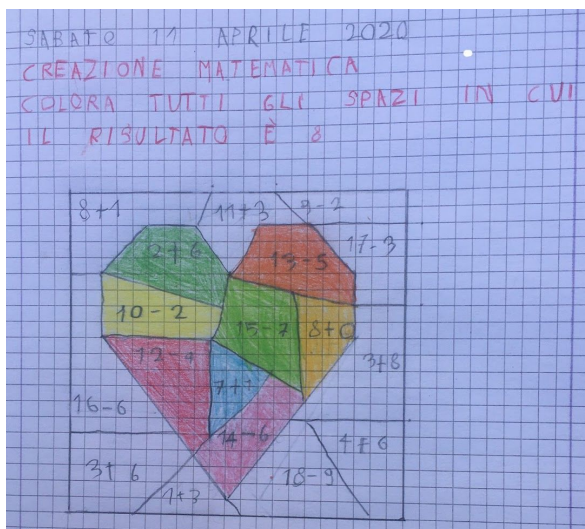 SABATO 11 APRILE 2020
CREAZIONE MATEMATICA
COLORA TUTTI GLI SPAZI IN CUI
IL RISULTATO È 8
8+1
11+3
9-2
17-3
2+6
13-5
10-2
15-7
8+0
3+8
7+1
16-6
14-6
4+6
3+6
1+3
18-9